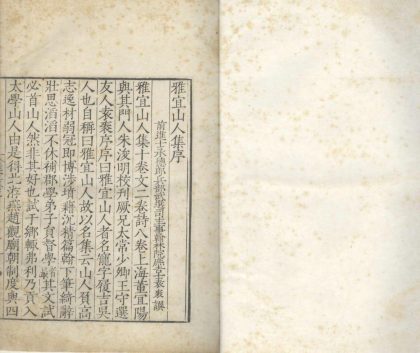 雅宜山人集序
前進士承德郎
袁袠譔
雅宜山人集十卷文二卷詩八卷上海董宜陽
與其門人朱浚明校刊厥兄太常少卿王守選
友人袁袠序序曰雅宜山人者名寵字履吉吳
人也自稱曰雅宜山人故以名集云山人質高
志逸材弱冠即博涉墳籍沉精篇翰下筆綺辭
壯思滔滔不休補郡學弟子員督學 其文試
必首山人然非其好也試于鄉輒弗利乃貢入
太學山人由是得北游燕趙觀廟朝制度與四